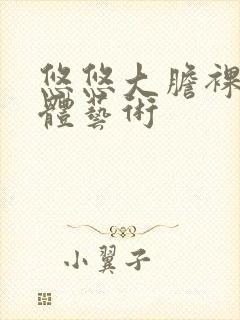 悠悠大膽裸
體藝術
小翼子